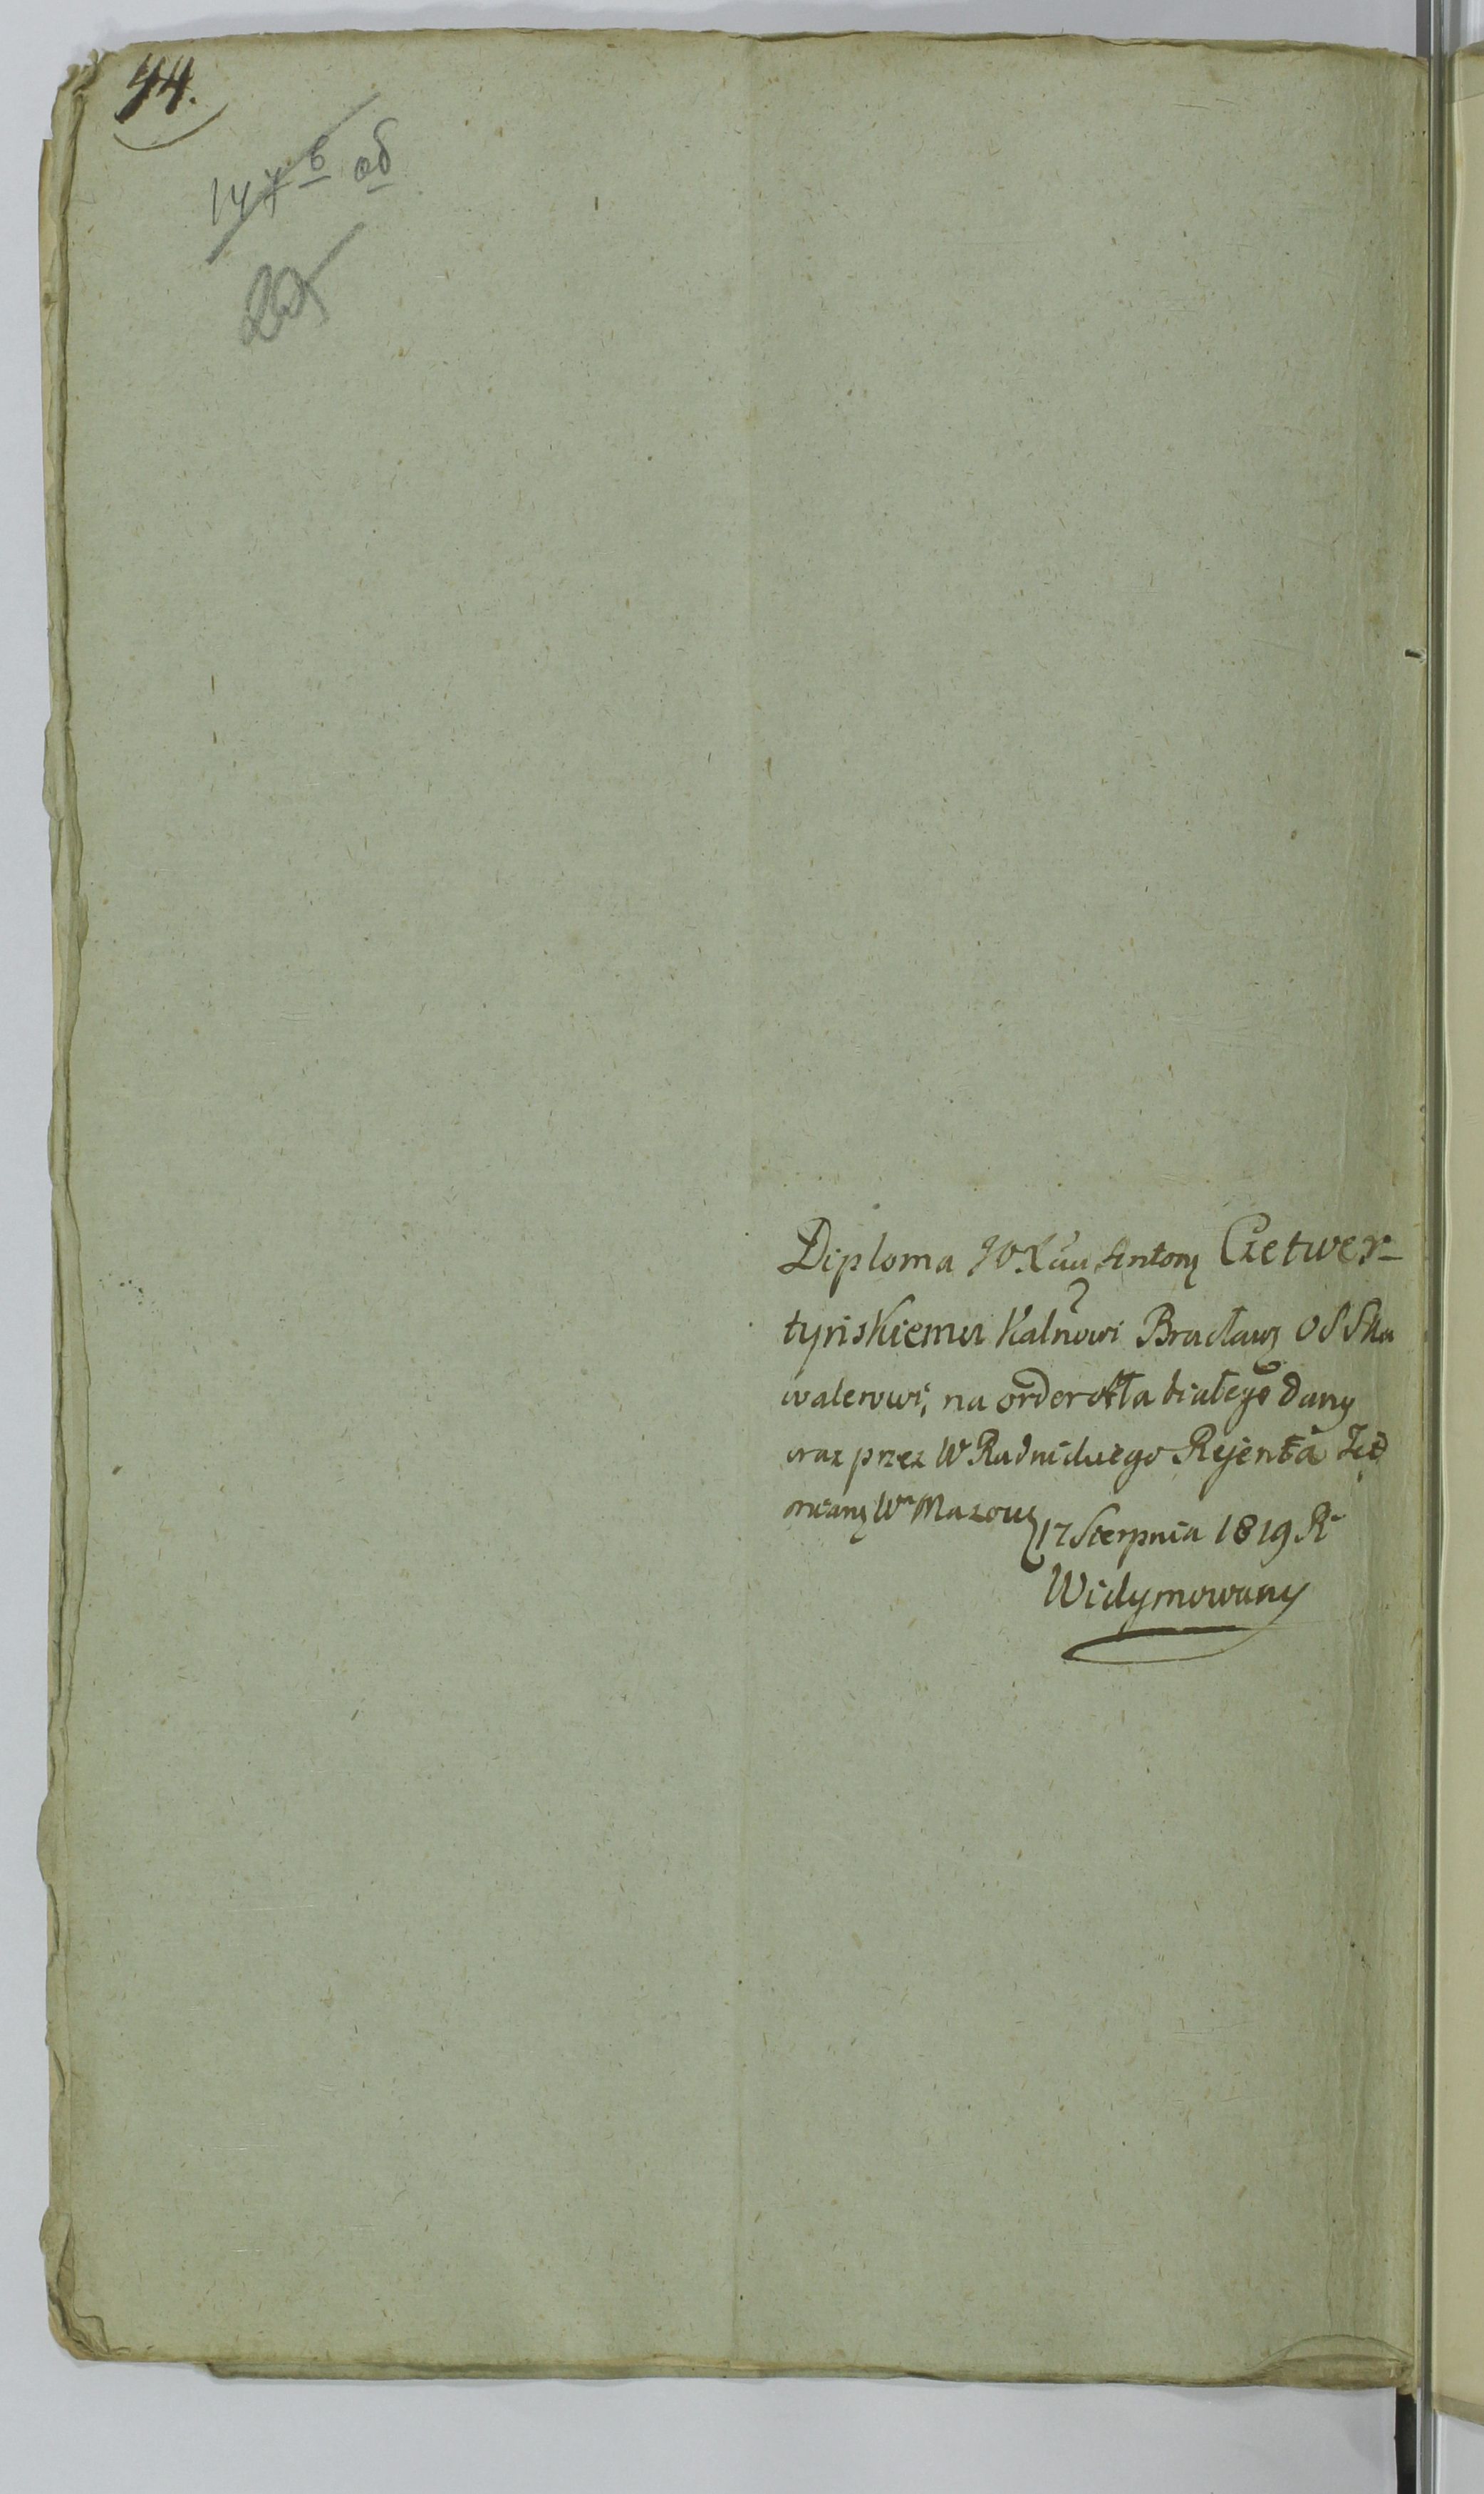 44.
147 6 об
Diploma JW Xciu Antony Czetwer-
tyńskiemu Kalnowi Bracławs OSSKa
walerowi, na order orła białego dany
oraz przez W Rudnickiego Rejenta
17 Sierpnia 1819 R
Widymowany